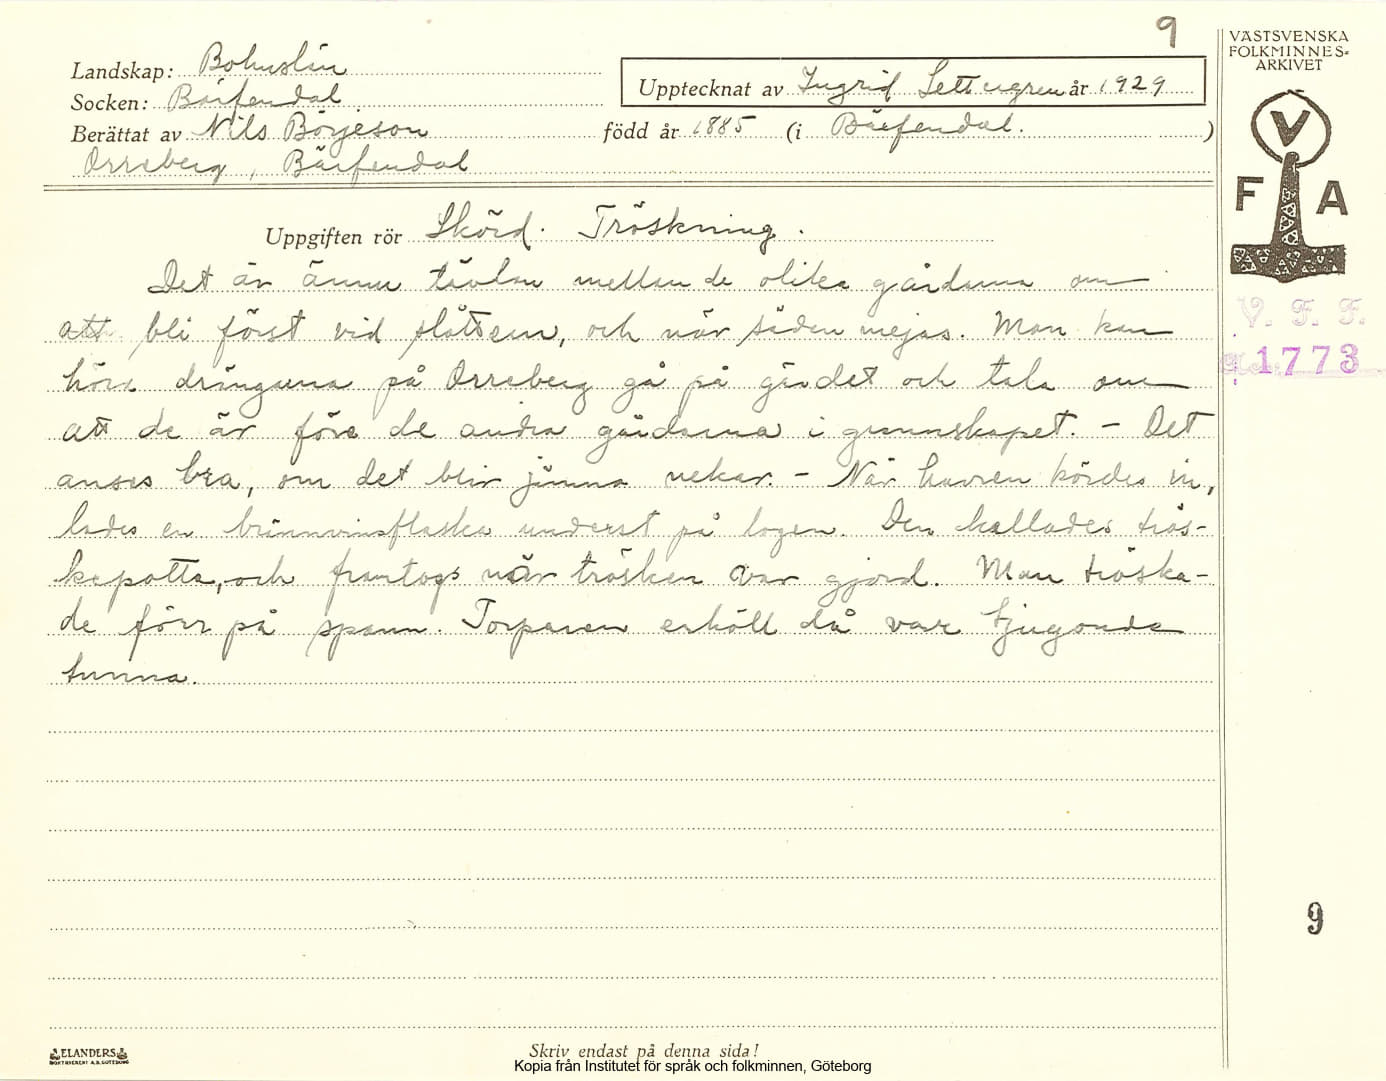 9
VÄSTSVENSKA
FOLKMINNES-
ARKIVET
Landskap: Bohuslän
Upptecknat av Ingrid år 1929
Socken: Bärfendal
Berättat av Nils Börjeson född år 1885 (i Bärfendal.)
Orreberg, Bärfendal
V
F A
Uppgiften rör Skörd. Tröskning.
Det är ännu tävlan mellan de olika gårdarna om
att bli först vid slåttern, och när säden mejas. Man kan
höra drängarna på Orreberg gå på gärdet och tala om
att de är före de andra gårdarna i grannskapet. - Det
anses bra, om det blir jämna nekar. - När havren kördes in,
lades en brännvinsflaska underst på logen. Den kallades trös-
kepotta, och framtogs när trösken var gjord. Man tröska-
de förr på spann. Torparen erhöll då var tjugonde
tunna.
V. F. F.
1773
9
ELANDERS
BOKTRYCKERI A.B. GÖTEBORG
Skriv endast på denna sida!
Kopia från Institutet för språk och folkminnen, Göteborg